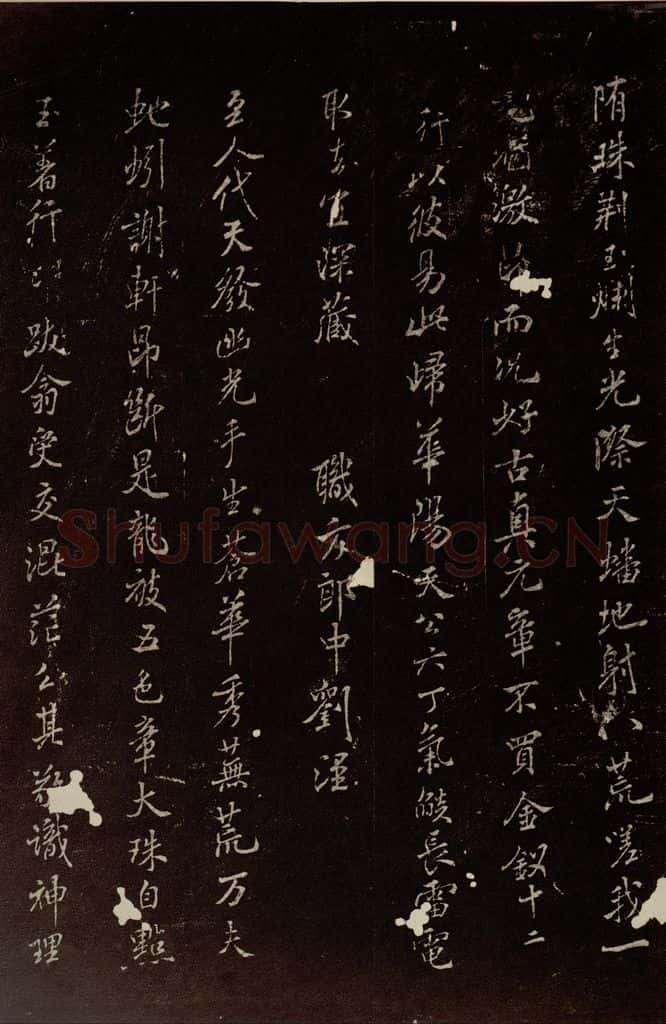 隋珠荆玉爛生光際天蟠地射八荒嗟我一
見猶激昂而況好古真元章不買金釵十二
行以彼易此歸華陽天公六丁氣燄長雷電
取去宜深藏 職方郎中劉涇
至人代天發幽光手生萬華秀蕪荒万夫
虵蚓謝軒昂斷是龍被五色章大珠自點
玉著行 跋翁受交混茫公其 識神理
Shufawang.CN